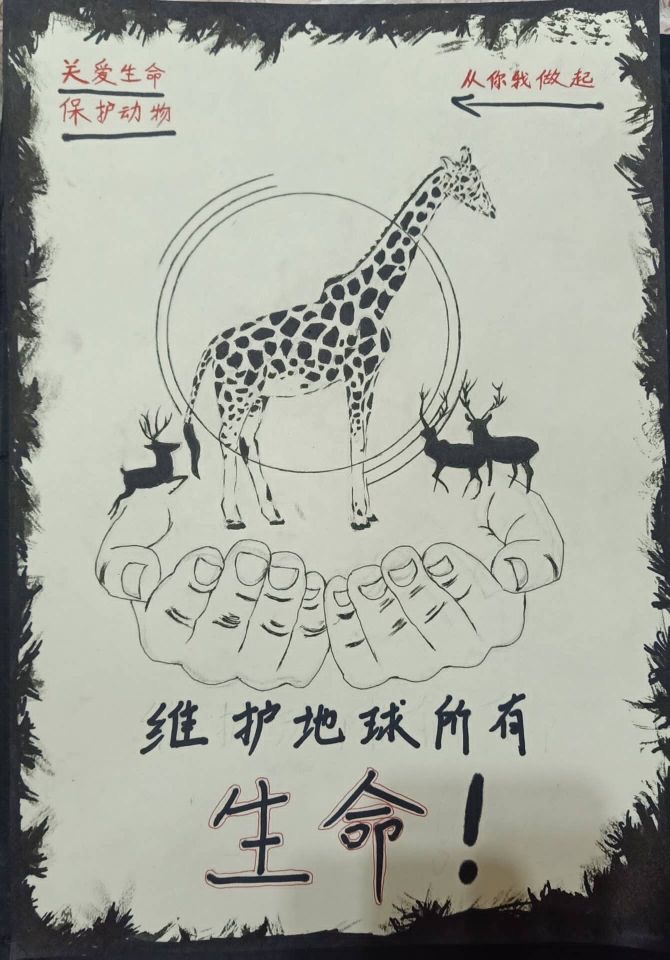 关爱生命
保护动物
从你我做起
维护地球所有
生命！